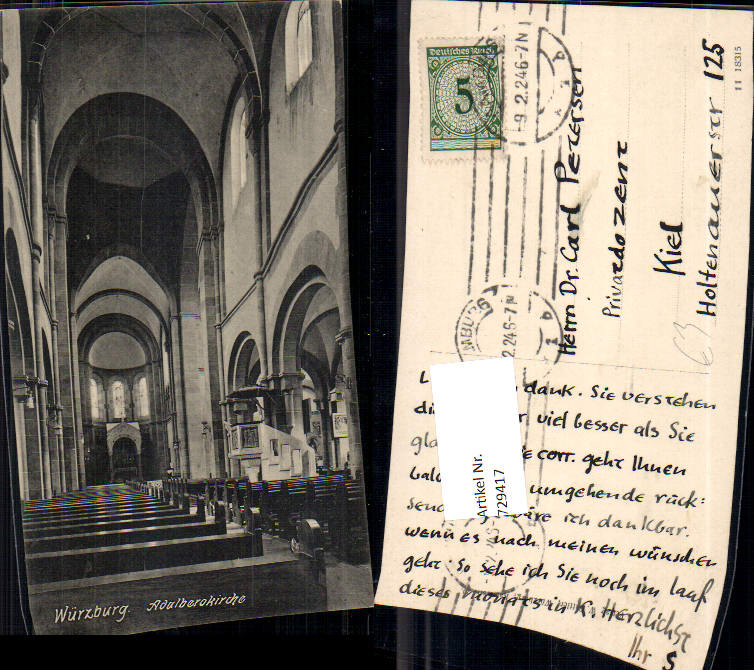 Würzburg. Adalberokirche
Deutsches Reich
5
-9.2.24 6-7N
MBURG
2.24 6-7N
Herrn Dr. Carl Petersen
Privatdozent
Kiel
Holtenauerstr 125
11 18315
63
dank. Sie verstehen
viel besser als Sie
corr. geht Ihnen
umgehende rück:
wäre ich dankbar.
wenn es nach meinen wünschen
geht. So sehe ich Sie noch im lauf
dieses monats in K. Herzlichst
Ihr S
Artikel Nr.
729417